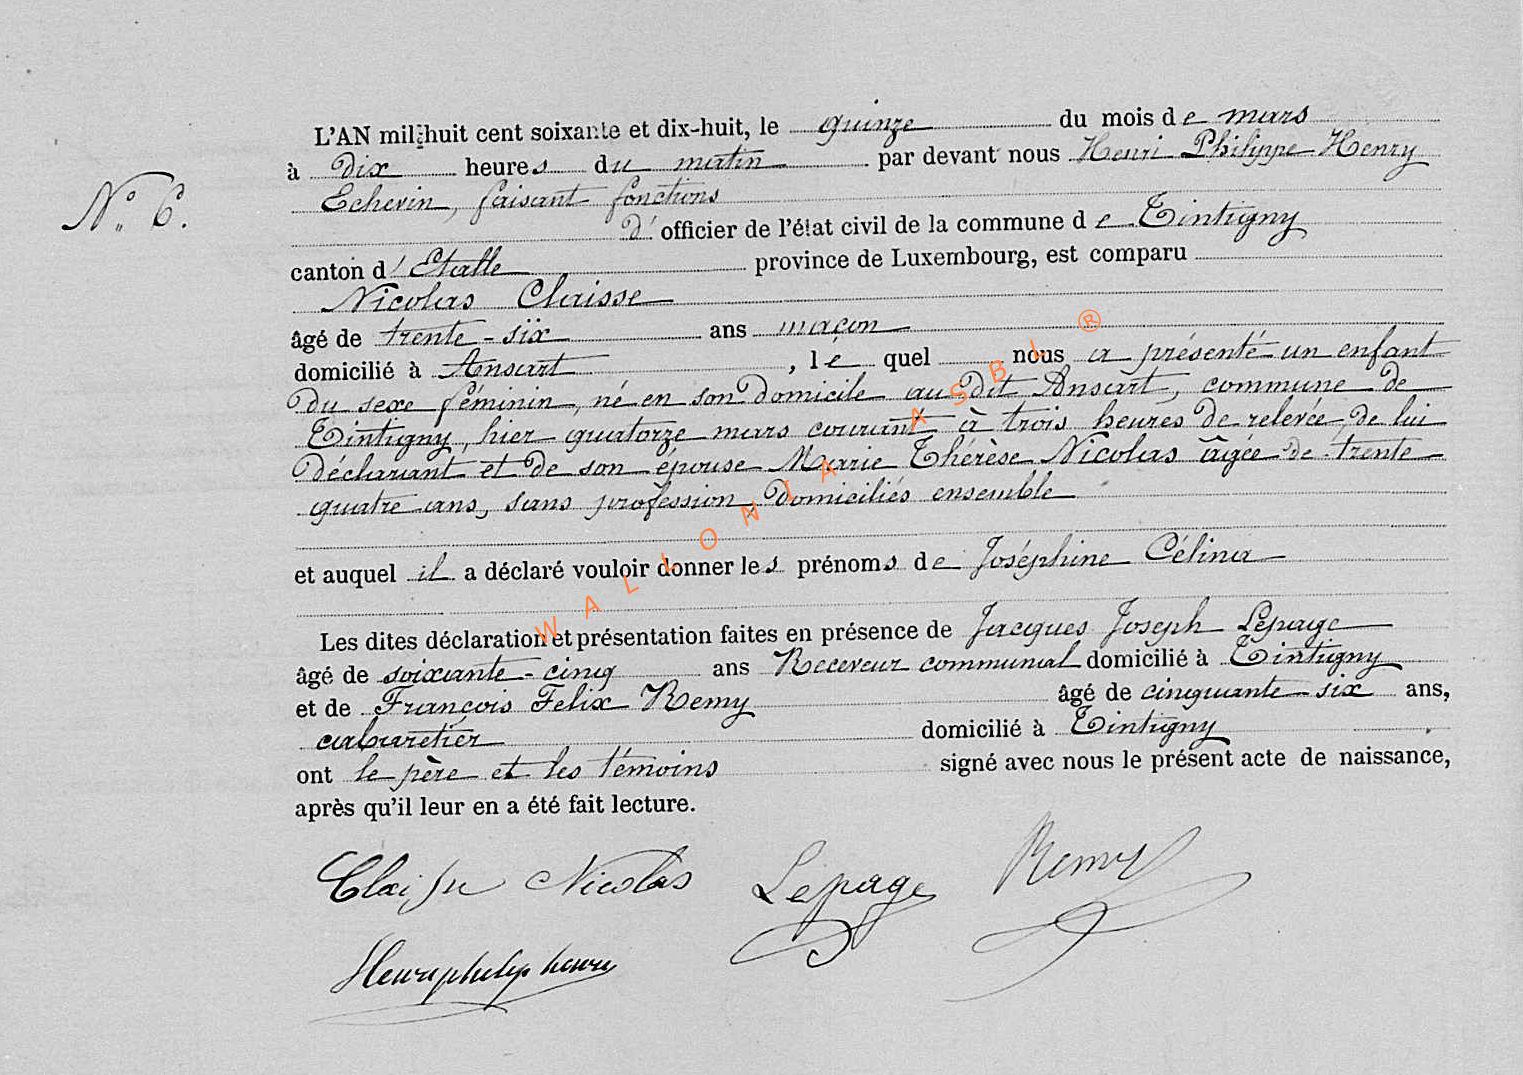 L'AN mil huit cent soixante et dix-huit, le quinze du mois de mars
à dix heures du matin par devant nous Henri Philippe Henry
N° 6.
Echevin, faisant fonctions
d' officier de l'état civil de la commune de Tintigny
canton d'Etalle province de Luxembourg, est comparu
Nicolas Claisse
âgé de trente-six ans maçon
domicilié à Ansart, lequel nous a présenté un enfant
du sexe féminin, né en son domicile au dit Ansart, commune de
Tintigny, hier quatorze mars courant à trois heures de relevée, de lui
déclarant et de son épouse Marie Thérèse Nicolas âgée de trente
quatre ans, sans profession, domiciliés ensemble
et auquel il a déclaré vouloir donner les prénoms de Joséphine Célina
Les dites déclaration et présentation faites en présence de Jacques Joseph Lepage
âgé de soixante-cinq ans Receveur communal domicilié à Tintigny
et de François Felix Remy âgé de cinquante-six ans,
cabaretier domicilié à Tintigny
ont le père et les témoins signé avec nous le présent acte de naissance,
après qu'il leur en a été fait lecture.
Claisse Nicolas Lepage Remy
Henri philip henri
WALLONIA ASBL ®